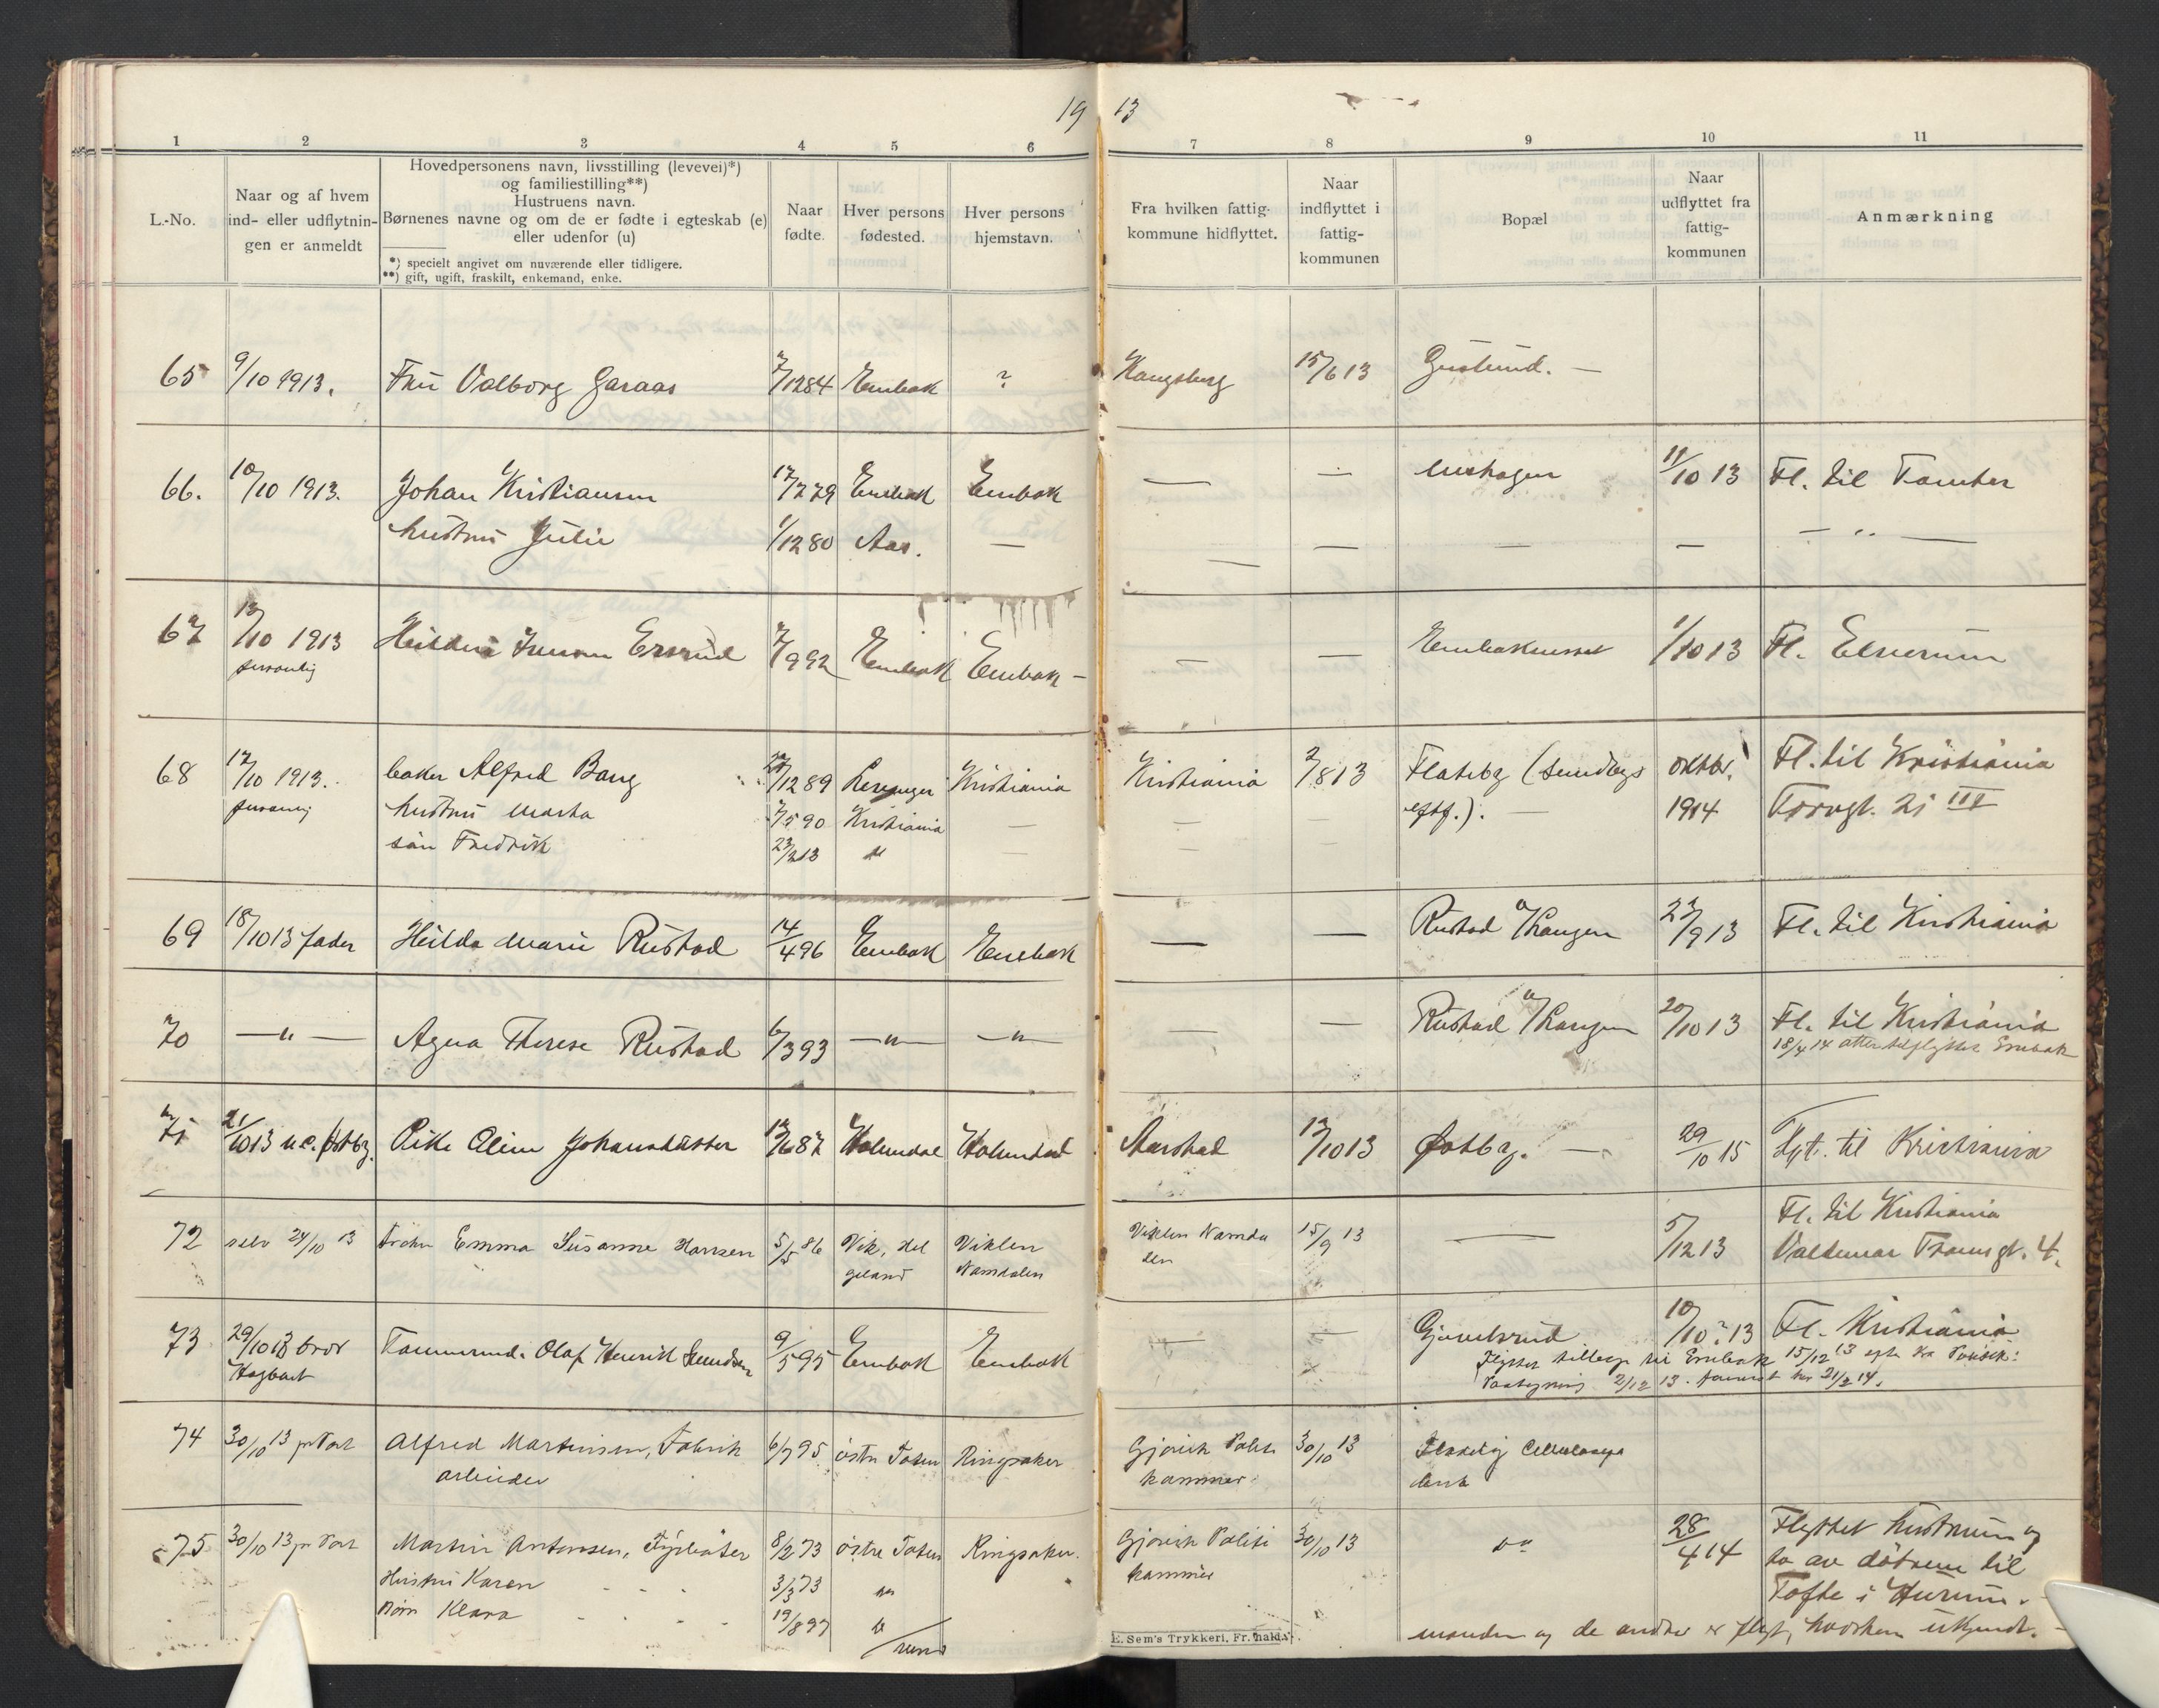 19 13
1 2 3 4 5 6 7 8 9 10 11
L.-No.
Naar og af hvem
ind- eller udflytnin-
gen er anmeldt
Hovedpersonens navn, livsstilling (levevei)*)
og familiestilling**)
Hustruens navn.
Børnenes navne og om de er fødte i egteskab (e)
eller udenfor (u)
*) specielt angivet om nuværende eller tidligere.
**) gift, ugift, fraskilt, enkemand, enke.
Naar
fødte.
Hver persons
fødested.
Hver persons
hjemstavn.
Fra hvilken fattig-
kommune hidflyttet.
Naar
indflyttet i
fattig-
kommunen
Bopæl
Naar
udflyttet fra
fattig-
kommunen
Anmærkning
65 9/10 1913. Fru Valborg Garaas 7/12 84 Enebak ? Kongsberg 15/6 13 —
66. 10/10 1913. Johan Kristiansen 17/7 79 Enebak Enebak — — 11/10 13 Fl. til Tomter
hustru Julie 1/12 80 Aas. — — — — — — „ —
67 13/10 1913 Ensrud 7/9 92 Enebak Enebak — — — 1/10 13 Fl. Elverum
personlig
68 17/10 1913. baker Alfred Bang 28/12 89 Kristiania Kristiania 2/8 13 Flateby (Sundbys oktbr. Fl. til Kristiania
personlig hustru Marta 7/5 90 Kristiania — — — eftf.). — 1914 Torvgt. 21 III
sön Fredrik 23/2 13 „ — — —
69 18/10 13 fader Hilda Marie Rustad 14/4 96 Enebak Enebak — — Rustad v/Langen 22/9 13 Fl. til Kristiania
70 — „ — Agna Therese Rustad 6/3 93 — „ — — „ — — — Rustad v/Langen 20/10 13 Fl. til Kristiania
18/4 14 atter tilflyttet Enebak
71 21/10 13 Østby. Johansdatter 12/6 87 Aarstad 13/10 13 Østby. — 29/10 15 til Kristiania
72 selv 24/10 13 Frøken Emma Susanne Hansen 5/5 86 Vik, Hel Viklen Viklen Namda 15/9 13 — 5/12 13 Fl. til Kristiania
geland Namdalen len Valdemar Thranesgt. 4.
73 29/10 13 bror Tømmermd. Olaf Henrik 9/5 95 Enebak Enebak — — 10/10 ? 13 Fl. Kristiania
Hagbart Flyttet tilbage til Enebak 15/12 13
2/12 13. 21/2 14.
74 30/10 13 pr Post Alfred Martinsen, Fabrik 6/7 95 östre Toten Ringsaker Gjövik Politi 30/10 13 Flateby Cellulosefa
arbeider kammer brik
75 30/10 13 pr Post Martin Antonsen, Fyrböter 8/2 73 östre Toten Ringsaker. Gjövik Politi 30/10 13 „ 28/4 14 Flyttet hustruen og
Hustru Karen 3/3 73 „ kammer to av døtrene til
Børn Klara 19/8 97 „ Tofte i Hurum.
vend E. Sem's Trykkeri, Fr.hald. manden og de andre er flyt, hvorhen ukjendt.